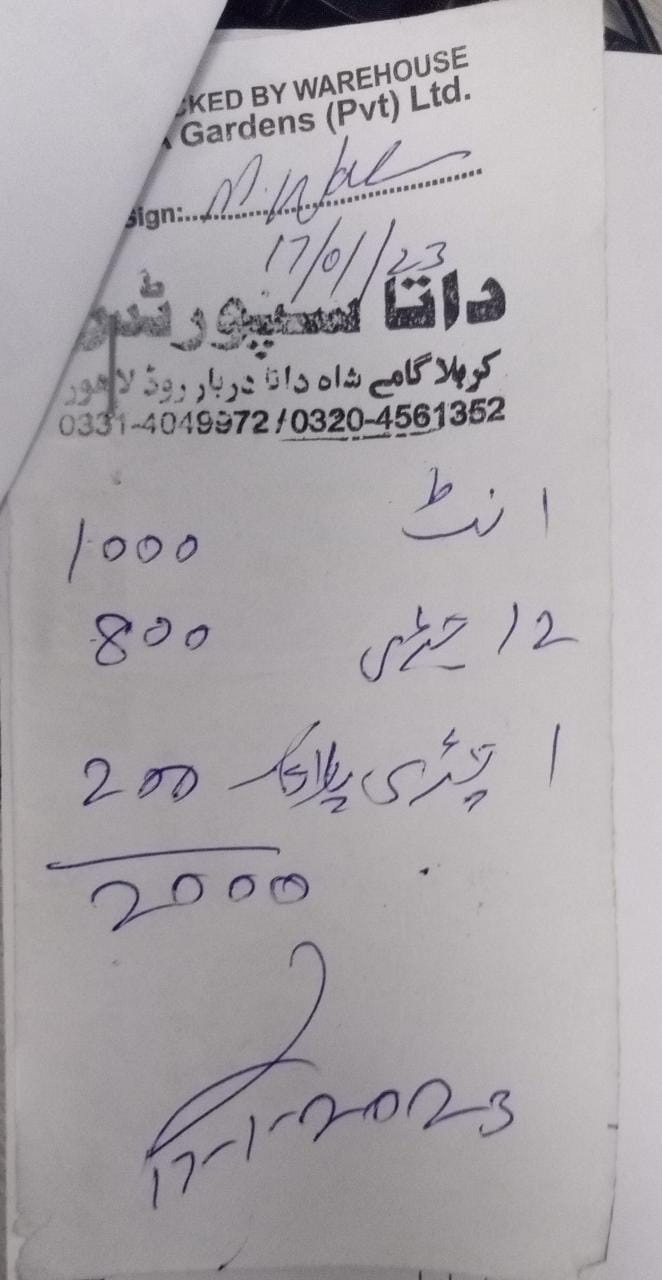 CKED BY WAREHOUSE
Gardens (Pvt) Ltd.
sign:
17/01/23
داتا سپورٹس
کربلا گامے شاہ داتا دربار روڈ لاہور
0331-4049972/0320-4561352
1 نٹ 1000
12 800
1 200
2000
17-1-2023